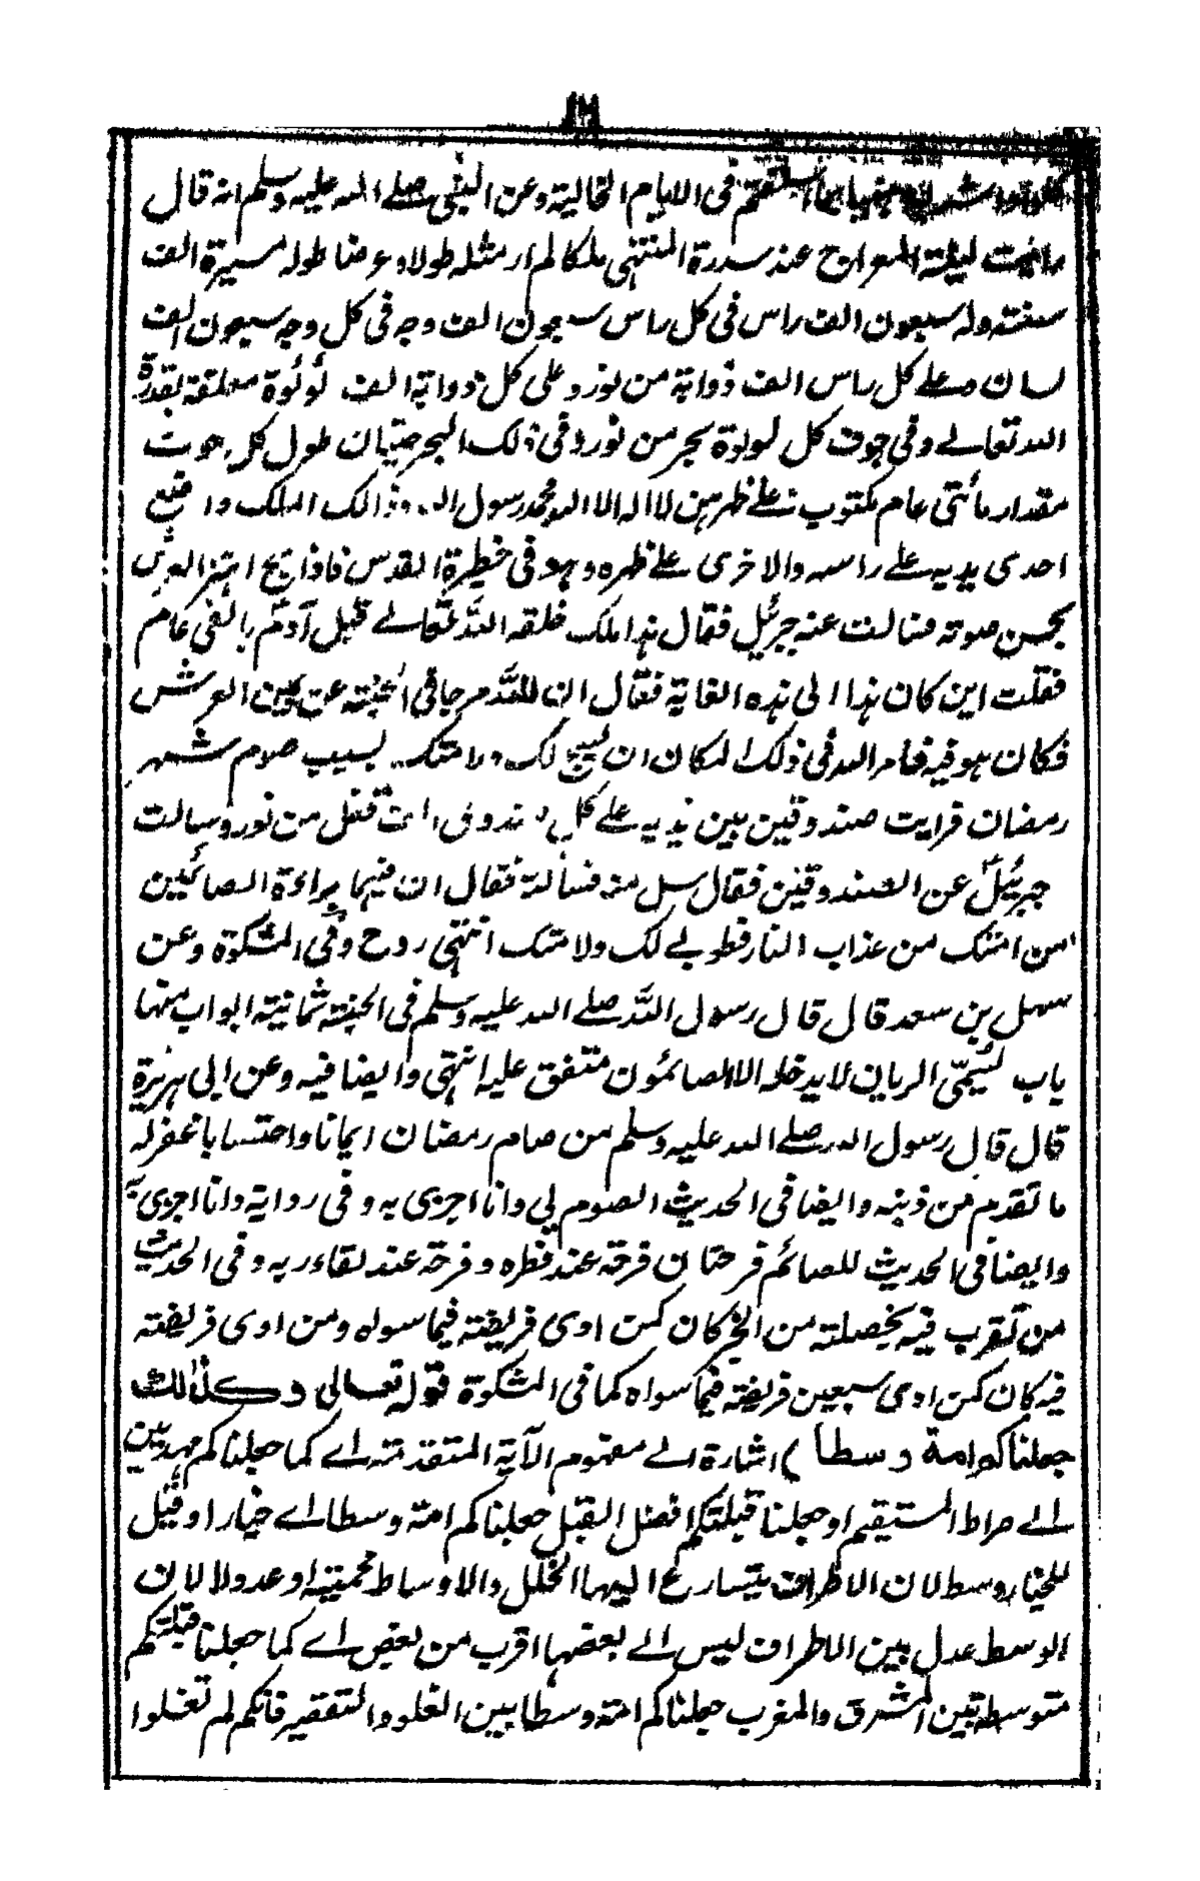 كلوا واشربوا هنيئا بما اسلفتم فى الايام الخالية وعن النبى صلے الله عليه وسلم انه قال
رائيت ليلة المعراج عند سدرة المنتهى ملكا لم ار مثله طولا وعرضا طوله مسيرة الف
سنة وله سبعون الف راس فى كل راس سبعون الف وجه فى كل وجه سبعون الف
لسان وعلے كل راس الف ذوابة من نور وعلى كل ذوابة الف لؤلؤة معلقة بقدرة
الله تعالے وفى جوف كل لولوة بحر من نور وفى ذلك البحر حيتان طول كل حوت
مقدار مأتى عام مكتوب علے ظهرهن لا اله الا الله محمد رسول الله وذالك الملك واضع
احدى يديه علے راسه والاخرى علے ظهره وهو فى خطيرة القدس فاذا سبح اهتز العرش
بحسن صوته فسالت عنه جبرئيل فقال هذا ملك خلقه الله تعالے قبل آدم بالفى عام
فقلت اين كان هذا الى هذه الغاية فقال ان لله مرجا فى الجنة عن يمين العرش
فكان هو فيه فامر الله فى ذلك المكان ان يسبح لك ولامتك بسبب صوم شهر
رمضان فرايت صندوقين بين يديه علے كل صندوق الف قفل من نور وسالت
جبرئيل عن الصندوقين فقال سل منه فسألته فقال ان فيهما براءة الصائمين
من امتك من عذاب النار فطوبے لك ولامتك انتهى روح وفى المشكوة وعن
سهل بن سعد قال قال رسول الله صلے الله عليه وسلم فى الجنة ثمانية ابواب منها
باب يسمى الريان لا يدخله الا الصائمون متفق عليه انتهى وايضا فيه وعن ابى هريرة
قال قال رسول الله صلے الله عليه وسلم من صام رمضان ايمانا واحتسابا غفر له
ما تقدم من ذنبه وايضا فى الحديث الصوم لى وانا اجزى به وفى رواية وانا اجزى به
وايضا فى الحديث للصائم فرحتان فرحة عند فطره وفرحة عند لقاء ربه وفى الحديث
من تقرب فيه بخصلة من الخير كان كمن ادى فريضة فيما سواه ومن ادى فريضة
فيه كان كمن ادى سبعين فريضة فيما سواه كما فى المشكوة قوله تعالى وكذلك
جعلناكم امة وسطا ) اشارة الے مفهوم الآية المتقدمة اے كما جعلناكم مهديين
الے صراط المستقيم او جعلنا قبلتكم افضل القبل جعلناكم امة وسطا اے خيارا وقيل
للخيار وسط لان الاطراف يتسارع اليها الخلل والاوساط محمية او عدولا لان
الوسط عدل بين الاطراف ليس الے بعضها اقرب من بعض اے كما جعلنا قبلتكم
متوسطة بين المشرق والمغرب جعلناكم امة وسطا بين الغلو والتقصير فانكم لم تغلوا